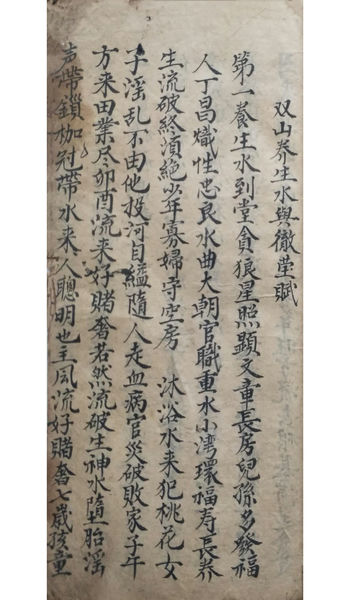 双山养生水與徹堂賦
第一養生水到堂貪狼星照顯文章長房兒孫多發福
人丁昌熾性忠良水曲大朝官職重水小灣環福寿長养
生流破終須絕少年寡婦守空房 沐浴水来犯桃花女
子淫乱不由他投河自縊隨人走血病官災破敗家子午
方来田業尽卯酉流来好賭奢若然流破生神水墮胎淫
声帶鎖枷冠帶水来人聰明也主風流好賭奢七歲孩童